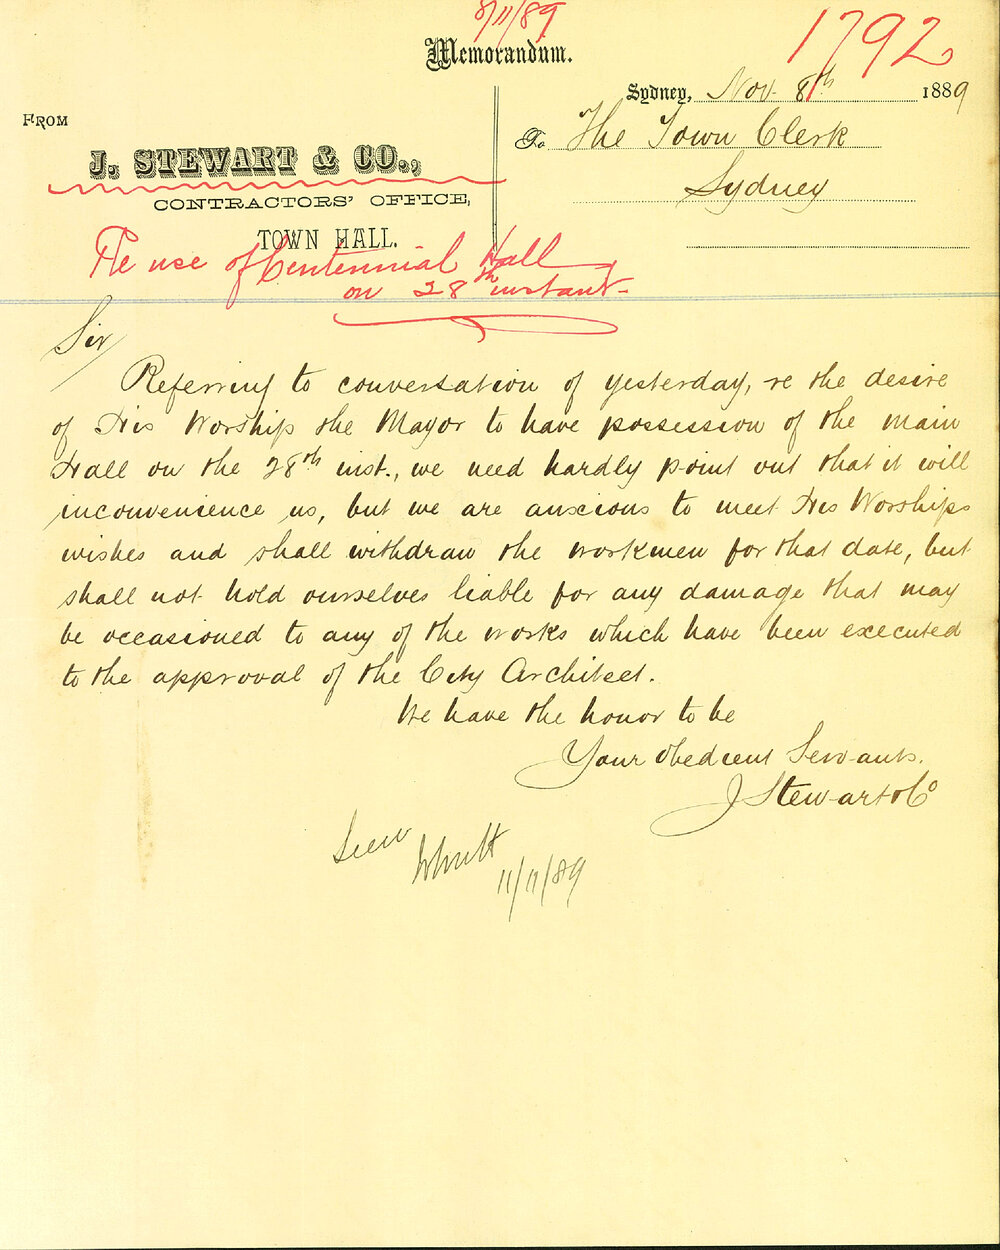 8/11/89
1792
Memorandum.
Sydney, Nov. 8th 1889
FROM
To The Town Clerk
J. STEWART & CO.,
Sydney
CONTRACTORS' OFFICE,
TOWN HALL.
The use of Centennial Hall
on 28th instant.
Sir
Referring to conversation of yesterday, re the desire
of His Worship the Mayor to have possession of the main
Hall on the 28th inst., we need hardly point out that it will
inconvenience us, but we are anxious to meet His Worships
wishes and shall withdraw the workmen for that date, but
shall not hold ourselves liable for any damage that may
be occasioned to any of the works which have been executed
to the approval of the City Architect.
We have the honor to be
Your obedient Servants.
J Stewart & Co
Seen
11/11/89